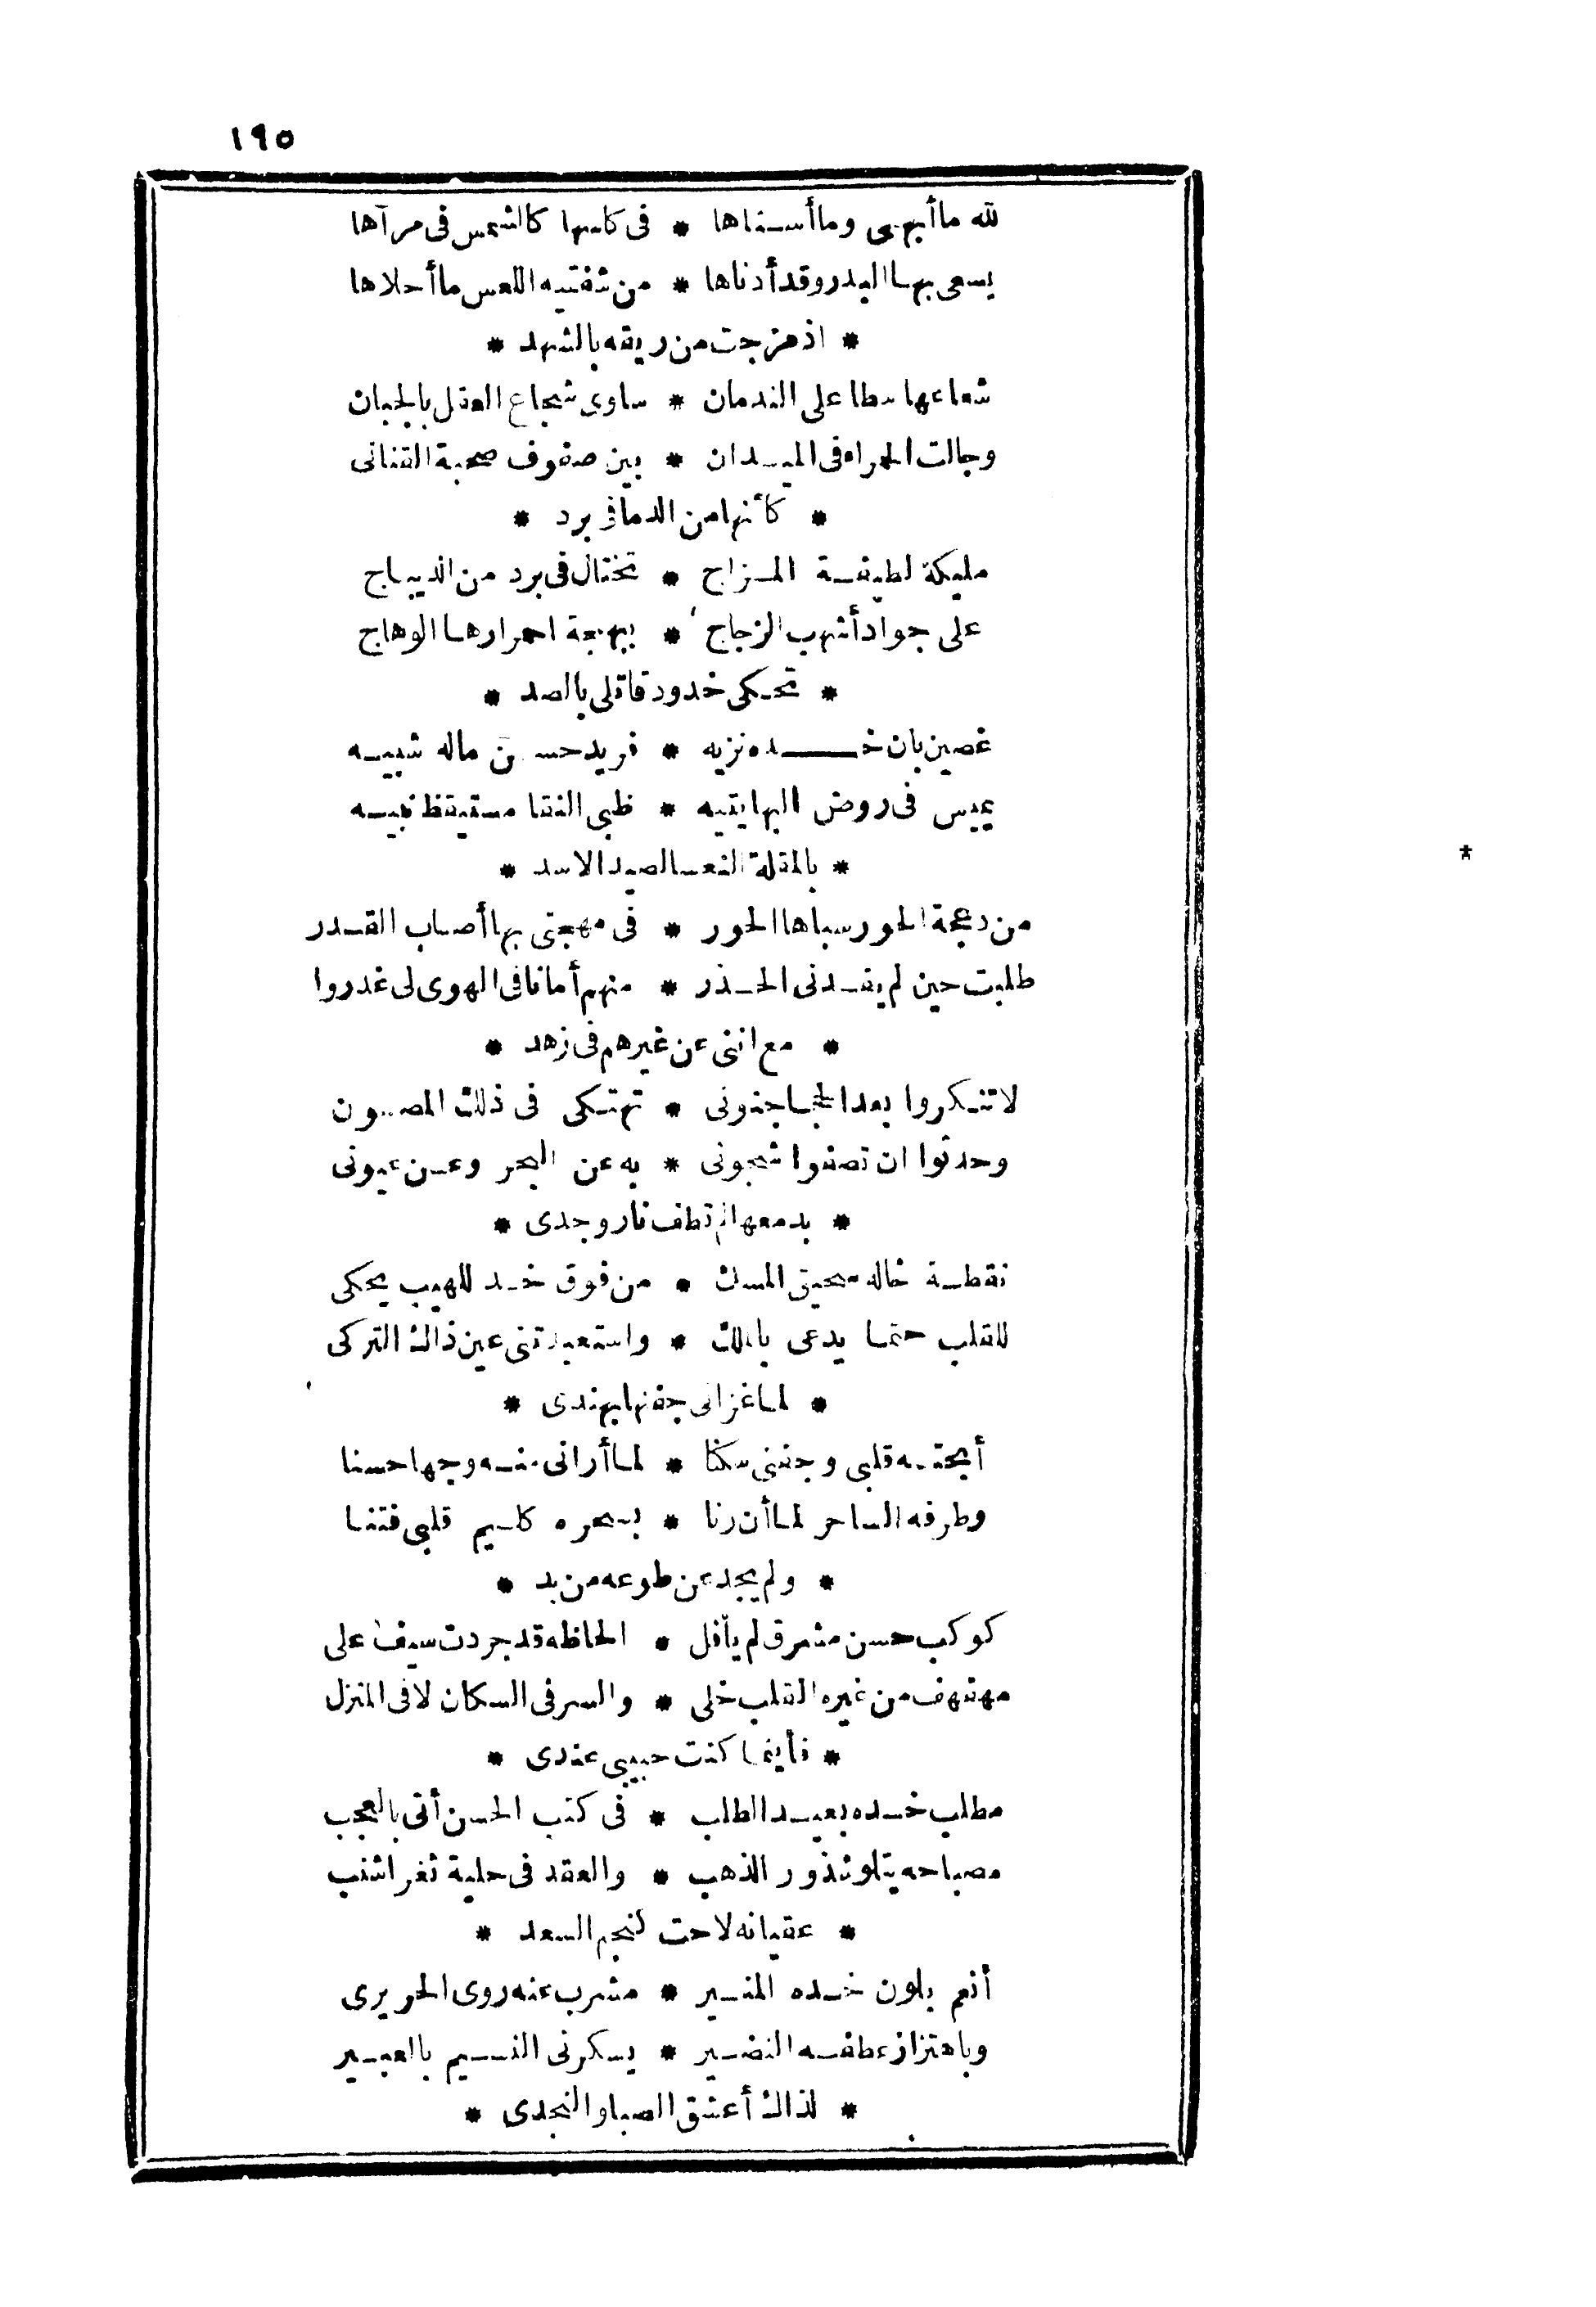 ١٩٥
لله ما أبهى وما أسناها * فى كاسها كالشمس فى مرآها
يسعى بها البدر وقد أدناها * من شفتيه اللعس ما أحلاها
* اذ مزجت من ريقه بالشهد *
شعاعها سطا على الندمان * ساوى شجاع العقل بالجبان
وجالت الحمراء فى الميدان * بين صفوف صحبة القنانى
* كأنها من الدما فى برد *
مليكة لطيفة المزاج * تختال فى برد من الديباج
على جواد أشهب الزجاج * ببهجة احمرارها الوهاج
* تحكى خدود قاتلى بالصد *
غصين بان خده نزيه * فريد حسن ماله شبيه
يميس فى روض البها يتيه * ظبى النقا مستيقظ نبيه
* بالمقلة النعسا لصيد الاسد *
من دعجة الحور سباها الحور * فى مهجتى بها أصاب القدر
طلبت حين لم يفدنى الحذر * منهم أمانا فى الهوى لى غدروا
* مع اننى عن غيرهم فى زهد *
لا تنكروا بعد الحجا جنونى * تهتكى فى ذلك المصون
وحدثوا ان تصفوا شجونى * به عن البحر وعن عيونى
* بدمعها لم تطف نار وجدى *
نقطة خاله سحيق المسك * من فوق خد للهيب يحكى
للقلب حتما يدعى بالملك * واستعبدتنى عين ذاك التركى
* لما غزانى جفنها بهندى *
أبحته قلبى وجفنى سكنا * لما أرانى منه وجها حسنا
وطرفه الساحر لما أن رنا * بسحره كليم قلبى فتنا
* ولم يجد عن طوعه من بد *
كوكب حسن مشرق لم يأفل * الحاظه قد جردت سيف على
مهفهف من غيره القلب خلى * والسر فى السكان لا فى المنزل
* فأينما كنت حبيبى عندى *
مطلب خده بعيد الطلب * فى كتب الحسن أتى بالعجب
مصباحه يتلو شذور الذهب * والعقد فى حلية ثغر اشنب
* عقيانه لاحت كنجم السعد *
أنعم بلون خده المنير * مشرب عنه روى الحريرى
وباهتزاز عطفه النضير * يسكرنى النسيم بالعبير
* لذاك أعشق الصبا والنجدى *